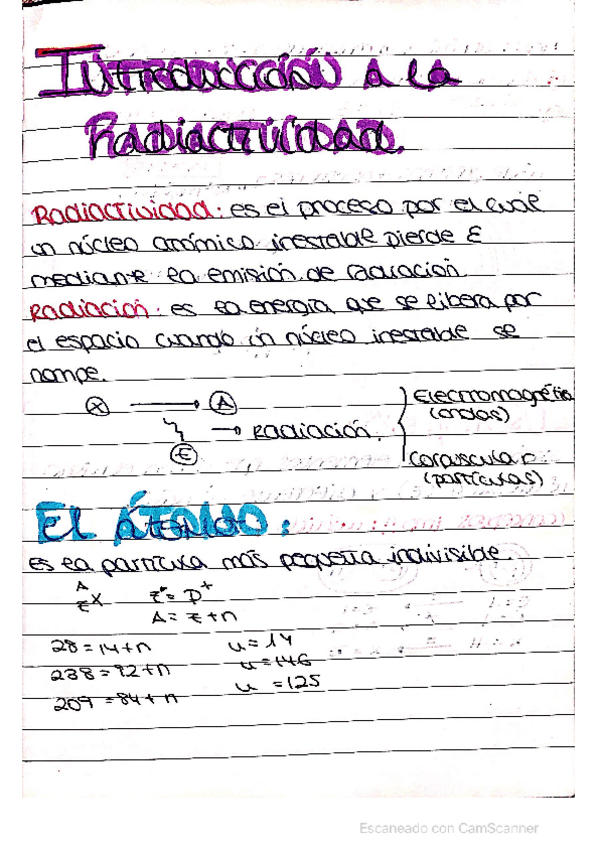 INTRODUCCIÓN A LA
RADIACTIVIDAD.
Radiactividad: es el proceso por el cual
un núcleo atómico inestable pierde E
mediante la emisión de radiación.
Radiación: es la energía que se libera por
el espacio cuando un núcleo inestable se
rompe.
X → A
E → radiación.
Electromagnética (ondas)
Corpuscular (partículas)
EL ÁTOMO:
es la partícula más pequeña indivisible.
A Z X
Z = P+
A = Z + n
28 = 14 + n
n = 14
238 = 92 + n
n = 146
209 = 84 + n
n = 125
Escaneado con CamScanner